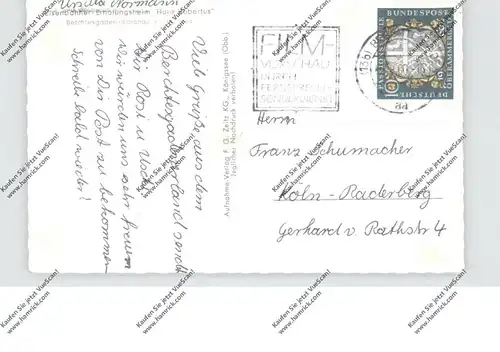 Ursula Normann
Eisenbahner-Erholungsheim "Haus Hubertus"
Viele Grüße aus dem
Berchtesgadener Land sendet
Dir Rosi u Uschi
Wir würden uns sehr freuen
von Dir Post zu bekommen
Schreibe bald wieder!
Aufnahme-Verlag F. G. Zeitz KG., Königssee (Obb.)
Jeglicher Nachdruck verboten!
FILM-
VORSCHAU
DURCH
DEUTSCHE
BUNDESPOST
PASSIONSSPIELE
OBERAMMERGAU
10
Herrn
Franz Schumacher
Köln-Raderberg
Gerhard v. Rathstr 4
Kaufen Sie jetzt VueScan!
www.hamrick.com